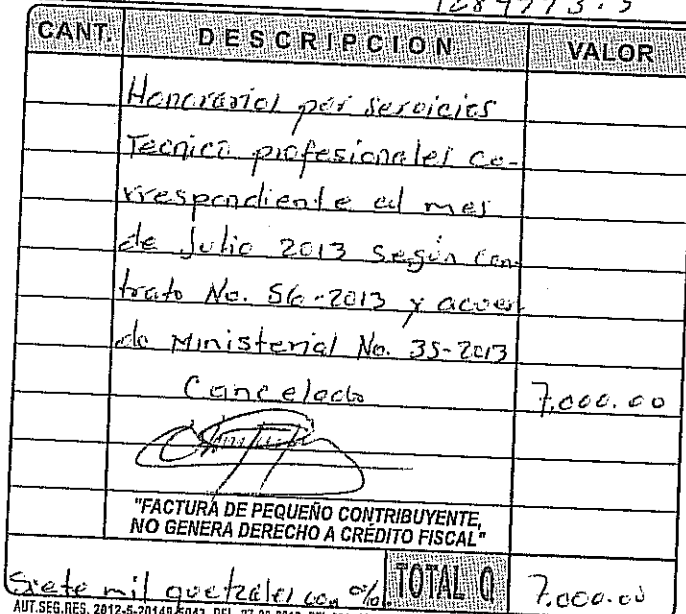 CANT. DESCRIPCION VALOR
Honorarios por Servicios
Tecnico profesionales Co-
rrespondiente al mes
de Julio 2013 Según Con-
trato No. 56-2013 y acuer-
do Ministerial No. 35-2013
Cancelado 7,000.00
"FACTURA DE PEQUEÑO CONTRIBUYENTE,
NO GENERA DERECHO A CRÉDITO FISCAL"
Siete mil quetzales con TOTAL Q 7,000.00